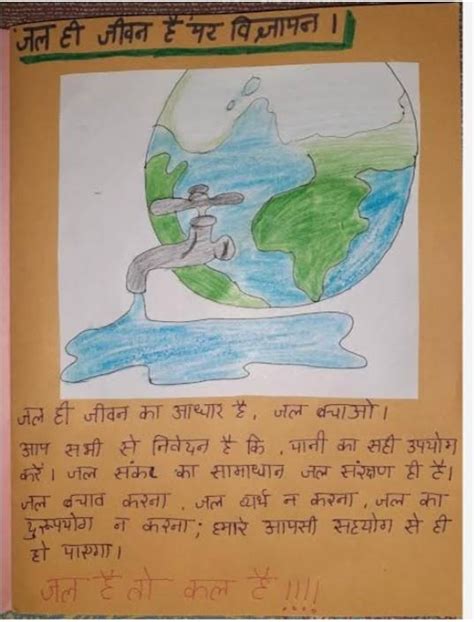 जल ही जीवन है पर विज्ञापन ।
जल ही जीवन का आधार है, जल बचाओ।
आप सभी से निवेदन है कि, पानी का सही उपयोग
करें। जल संकट का सामाधान जल संरक्षण ही है।
जल बचाव करना, जल व्यर्थ न करना, जल का
दुरूपयोग न करना; हमारे आपसी सहयोग से ही
हो पाएगा।
जल है तो कल है !!!!